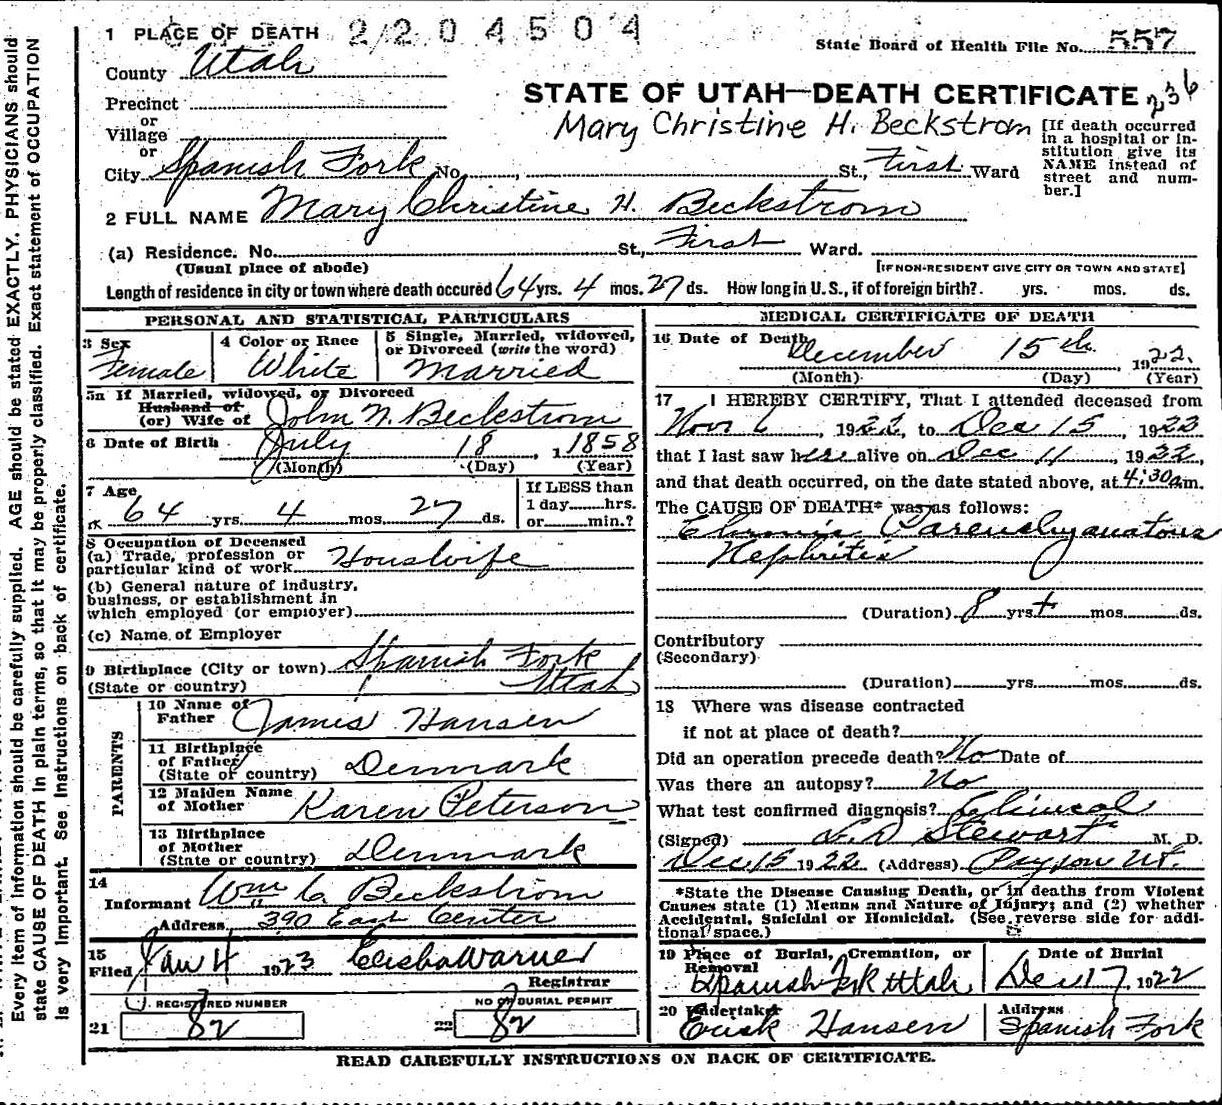 1 PLACE OF DEATH 2204504
State Board of Health File No. 557
County Utah
STATE OF UTAH—DEATH CERTIFICATE 236
Precinct
or
Village
or
Mary Christine H. Beckstrom
[If death occurred in a hospital or in-
stitution give its
NAME instead of
street and num-
ber.]
City Spanish Fork No. , St., First Ward
2 FULL NAME Mary Christine H. Beckstrom
(a) Residence. No. St., First Ward.
(Usual place of abode)
[IF NON-RESIDENT GIVE CITY OR TOWN AND STATE]
Length of residence in city or town where death occured 64 yrs. 4 mos. 27 ds. How long in U.S., if of foreign birth? yrs. mos. ds.
PERSONAL AND STATISTICAL PARTICULARS
3 Sex
Female
4 Color or Race
White
5 Single, Married, widowed,
or Divorced (write the word)
Married
5a If Married, widowed, or Divorced
Husband of
(or) Wife of John N. Beckstrom
6 Date of Birth July 18, 1858
(Month) (Day) (Year)
7 Age
64 yrs. 4 mos. 27 ds.
If LESS than
1 day hrs.
or min.?
8 Occupation of Deceased
(a) Trade, profession or
particular kind of work Houswife
(b) General nature of industry,
business, or establishment in
which employed (or employer)
(c) Name of Employer
9 Birthplace (City or town) Spanish Fork
(State or country) Utah
PARENTS
10 Name of
Father James Hansen
11 Birthplace
of Father
(State or country) Denmark
12 Maiden Name
of Mother Karen Peterson
13 Birthplace
of Mother
(State or country) Denmark
14
Informant Wm C. Beckstrom
Address 390 East Center
15
Filed Jan 4 1923 Elisha Warner
Registrar
REGISTERED NUMBER
21 82
NO OF BURIAL PERMIT
22 82
MEDICAL CERTIFICATE OF DEATH
16 Date of Death
December 15th 1922.
(Month) (Day) (Year)
17 I HEREBY CERTIFY, That I attended deceased from
Nov 6, 1922, to Dec 15, 1922
that I last saw her alive on Dec 11, 1922,
and that death occurred, on the date stated above, at 4:30 a.m.
The CAUSE OF DEATH* was as follows:
Chronic Parenchymatous
Nephritis
(Duration) 8 yrs + mos. ds.
Contributory
(Secondary)
(Duration) yrs. mos. ds.
18 Where was disease contracted
if not at place of death?
Did an operation precede death? No Date of
Was there an autopsy? No
What test confirmed diagnosis? Clinical
(Signed) L. D. Stewart M. D.
Dec 15 1922 (Address) Payson Ut.
*State the Disease Causing Death, or in deaths from Violent
Causes state (1) Means and Nature of Injury; and (2) whether
Accidental, Suicidal or Homicidal. (See reverse side for addi-
tional space.)
19 Place of Burial, Cremation, or
Removal
Spanish Fork Utah
Date of Burial
Dec 17, 1922
20 Undertaker
Erick Hansen
Address
Spanish Fork
READ CAREFULLY INSTRUCTIONS ON BACK OF CERTIFICATE.
Every item of information should be carefully supplied. AGE should be stated EXACTLY. PHYSICIANS should
state CAUSE OF DEATH in plain terms, so that it may be properly classified. Exact statement of OCCUPATION
is very important. See instructions on back of certificate.